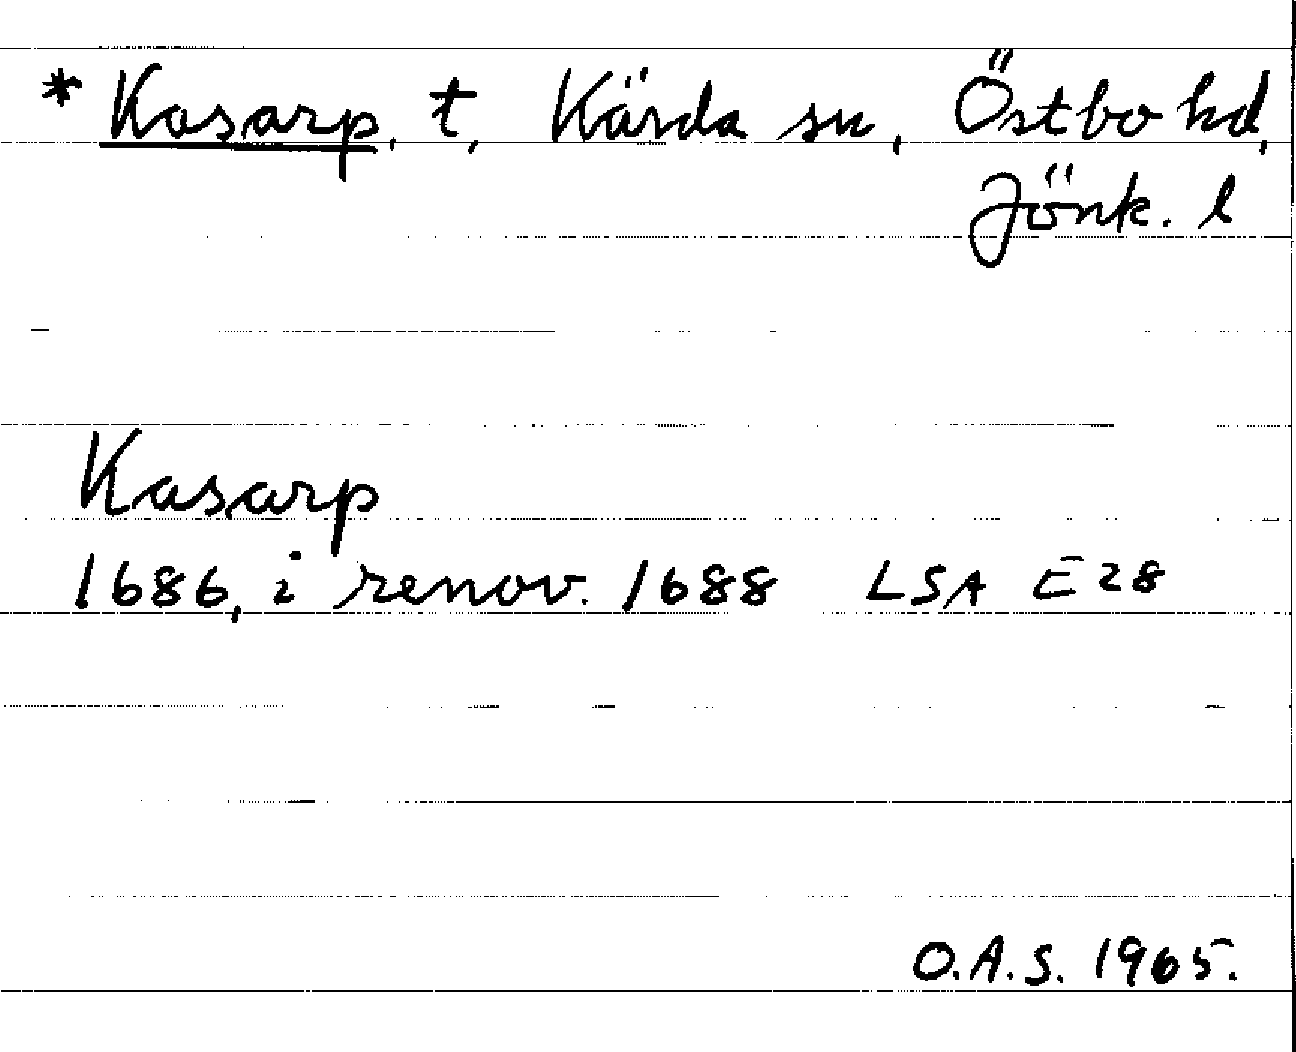 * Kasarp, t, Kärda sn, Östbo hd,
Jönk. l
Kasarp
1686, i renov. 1688 LSA E28
O.A.S. 1965.